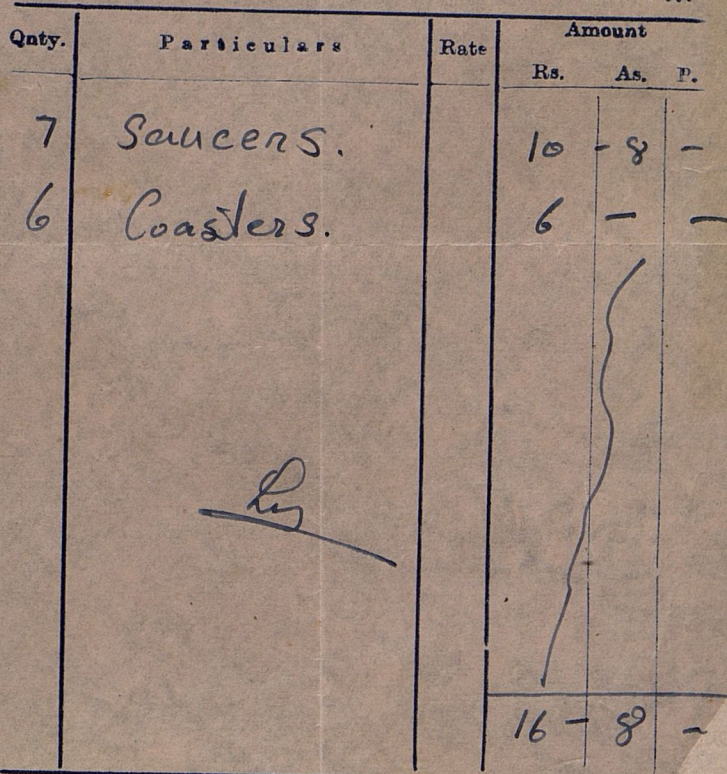 Qnty. Particulars Rate Amount
Rs. As. P.
7 Saucers. 10 - 8 -
6 Coasters. 6 - -
16 - 8 -